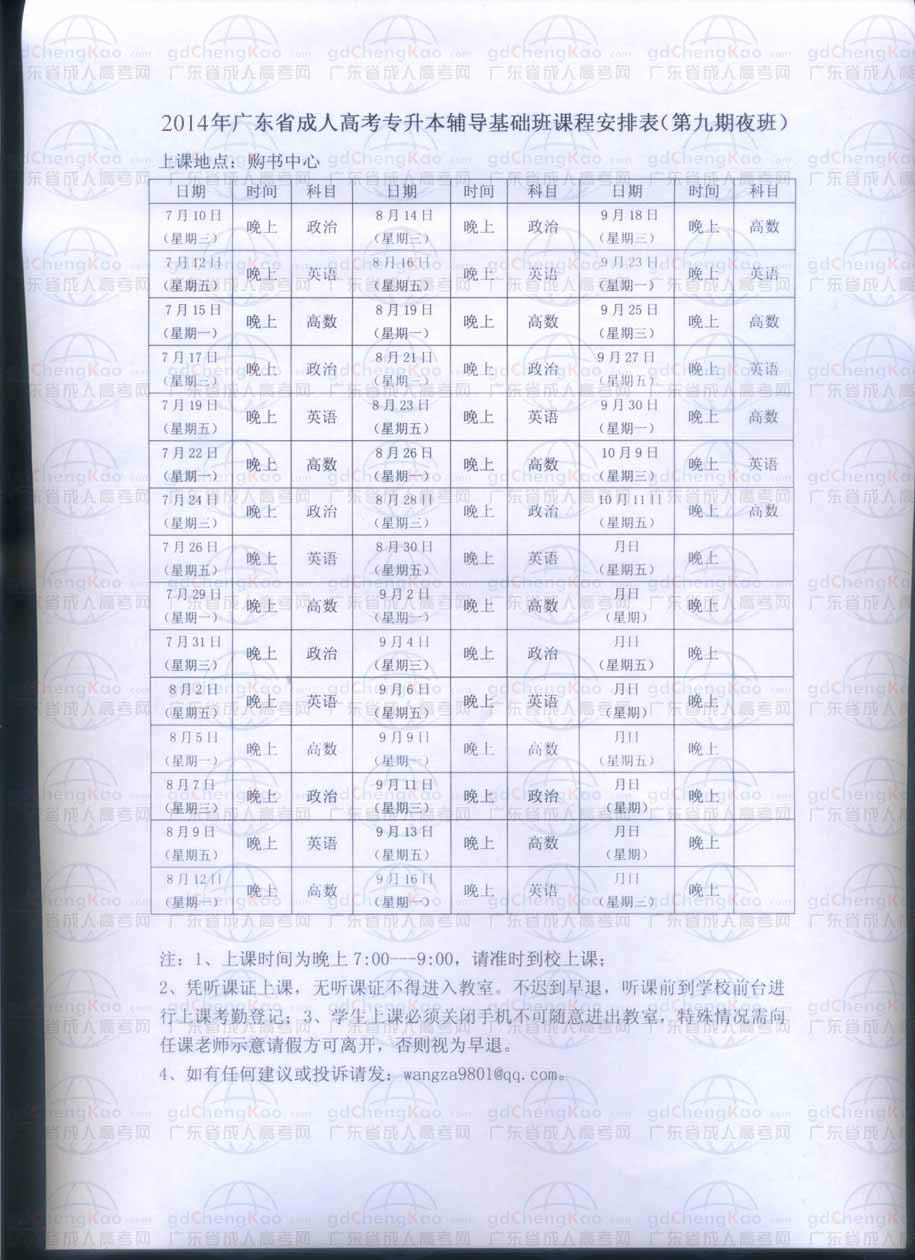 2014年广东省成人高考专升本辅导基础班课程安排表（第九期夜班）
上课地点：购书中心
日期 时间 科目 日期 时间 科目 日期 时间 科目
7月10日（星期三） 晚上 政治 8月14日（星期三） 晚上 政治 9月18日（星期三） 晚上 高数
7月12日（星期五） 晚上 英语 8月16日（星期五） 晚上 英语 9月23日（星期一） 晚上 英语
7月15日（星期一） 晚上 高数 8月19日（星期一） 晚上 高数 9月25日（星期三） 晚上 高数
7月17日（星期三） 晚上 政治 8月21日（星期三） 晚上 政治 9月27日（星期五） 晚上 英语
7月19日（星期五） 晚上 英语 8月23日（星期五） 晚上 英语 9月30日（星期一） 晚上 高数
7月22日（星期一） 晚上 高数 8月26日（星期一） 晚上 高数 10月9日（星期三） 晚上 英语
7月24日（星期三） 晚上 政治 8月28日（星期三） 晚上 政治 10月11日（星期五） 晚上 高数
7月26日（星期五） 晚上 英语 8月30日（星期五） 晚上 英语 月日（星期五） 晚上
7月29日（星期一） 晚上 高数 9月2日（星期一） 晚上 高数 月日（星期） 晚上
7月31日（星期三） 晚上 政治 9月4日（星期三） 晚上 政治 月日（星期五） 晚上
8月2日（星期五） 晚上 英语 9月6日（星期五） 晚上 英语 月日（星期） 晚上
8月5日（星期一） 晚上 高数 9月9日（星期一） 晚上 高数 月日（星期五） 晚上
8月7日（星期三） 晚上 政治 9月11日（星期三） 晚上 政治 月日（星期） 晚上
8月9日（星期五） 晚上 英语 9月13日（星期五） 晚上 高数 月日（星期） 晚上
8月12日（星期一） 晚上 高数 9月16日（星期一） 晚上 英语 月日（星期三） 晚上
注：1、上课时间为晚上7:00---9:00，请准时到校上课；
2、凭听课证上课，无听课证不得进入教室。不迟到早退，听课前到学校前台进
行上课考勤登记；3、学生上课必须关闭手机不可随意进出教室，特殊情况需向
任课老师示意请假方可离开，否则视为早退。
4、如有任何建议或投诉请发：wangza9801@qq.com。
gdChengKao.com
广东省成人高考网